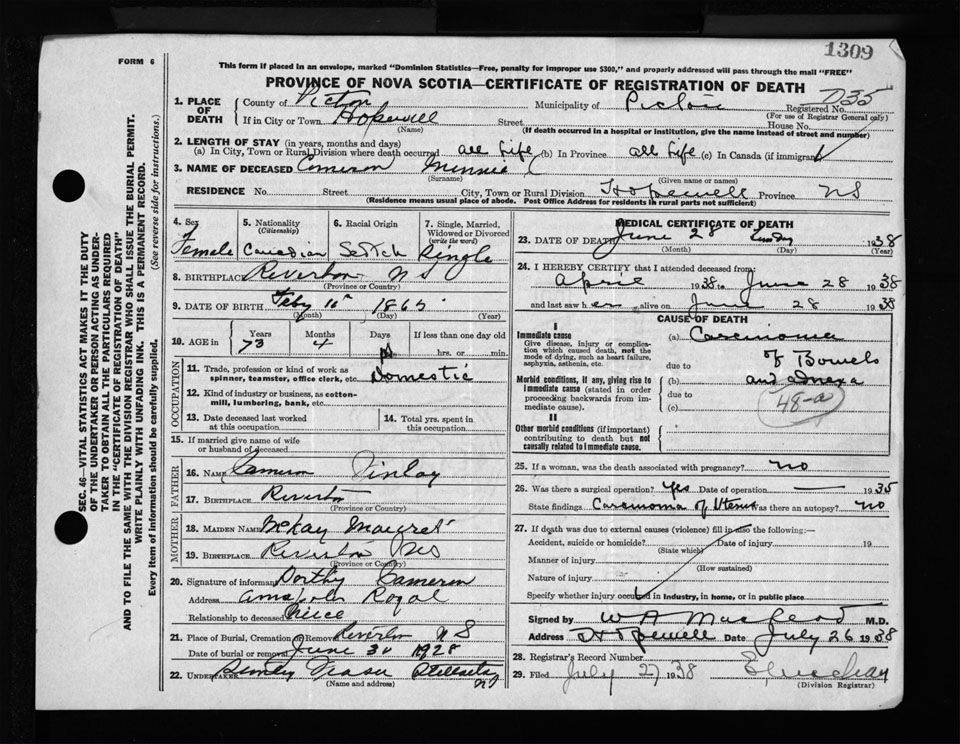 1309
FORM 6
This form if placed in an envelope, marked "Dominion Statistics—Free, penalty for improper use $300," and properly addressed will pass through the mail "FREE"
PROVINCE OF NOVA SCOTIA—CERTIFICATE OF REGISTRATION OF DEATH
SEC. 46—VITAL STATISTICS ACT MAKES IT THE DUTY
OF THE UNDERTAKER OR PERSON ACTING AS UNDER-
TAKER TO OBTAIN ALL THE PARTICULARS REQUIRED
IN THE "CERTIFICATE OF REGISTRATION OF DEATH"
AND TO FILE THE SAME WITH THE DIVISION REGISTRAR WHO SHALL ISSUE THE BURIAL PERMIT.
WRITE PLAINLY WITH UNFADING INK. THIS IS A PERMANENT RECORD.
Every item of information should be carefully supplied. (See reverse side for instructions.)
1. PLACE OF DEATH
County of Pictou Municipality of Pictou Registered No. 735
(For use of Registrar General only)
If in City or Town Hopewell Street House No.
(Name) (If death occurred in a hospital or institution, give the name instead of street and number)
2. LENGTH OF STAY (in years, months and days)
(a) In City, Town or Rural Division where death occurred all life (b) In Province all life (c) In Canada (if immigrant)
3. NAME OF DECEASED Cameron Minnie
(Surname) (Given name or names)
RESIDENCE No. Street City, Town or Rural Division Hopewell Province NS
(Residence means usual place of abode. Post Office Address for residents in rural parts not sufficient)
4. Sex 5. Nationality (Citizenship) 6. Racial Origin 7. Single, Married, Widowed or Divorced (write the word)
Female Canadian Scotch Single
8. BIRTHPLACE Riverton NS
(Province or Country)
9. DATE OF BIRTH Feby 10 1865
(Month) (Day) (Year)
10. AGE in Years Months Days If less than one day old
73 4 hrs. or min.
OCCUPATION
11. Trade, profession or kind of work as spinner, teamster, office clerk, etc. Domestic
12. Kind of industry or business, as cotton-mill, lumbering, bank, etc.
13. Date deceased last worked at this occupation
14. Total yrs. spent in this occupation
15. If married give name of wife or husband of deceased
FATHER
16. NAME Cameron Finlay
17. BIRTHPLACE Riverton
MOTHER
18. MAIDEN NAME McKay Margret
19. BIRTHPLACE Riverton NS
(Province or Country)
20. Signature of informant Dorthy Cameron
Address Annapolis Royal
Relationship to deceased Niece
21. Place of Burial, Cremation or Removal Riverton NS
Date of burial or removal June 30 1928
22. UNDERTAKER Stellarton NS
(Name and address)
MEDICAL CERTIFICATE OF DEATH
23. DATE OF DEATH June 28 1938
(Month) (Day) (Year)
24. I HEREBY CERTIFY that I attended deceased from
April 1938 to June 28 1938
and last saw her alive on June 28 1938
CAUSE OF DEATH
I
Immediate cause
Give disease, injury or complication which caused death, not the mode of dying, such as heart failure, asphyxia, asthenia, etc.
(a) Carcinoma
due to of Bowels
Morbid conditions, if any, giving rise to immediate cause (stated in order proceeding backwards from immediate cause).
(b) and
due to
(c)
48-a
II
Other morbid conditions (if important) contributing to death but not causally related to immediate cause.
25. If a woman, was the death associated with pregnancy? no
26. Was there a surgical operation? Yes Date of operation — 1935
State findings Carcinoma of Uterus Was there an autopsy? no
27. If death was due to external causes (violence) fill in also the following:—
Accident, suicide or homicide? Date of injury 19
(State which)
Manner of injury
(How sustained)
Nature of injury
Specify whether injury occurred in industry, in home, or in public place
Signed by W A MacLeod M.D.
Address Hopewell Date July 26 1938
28. Registrar's Record Number
29. Filed July 27 1938
(Division Registrar)